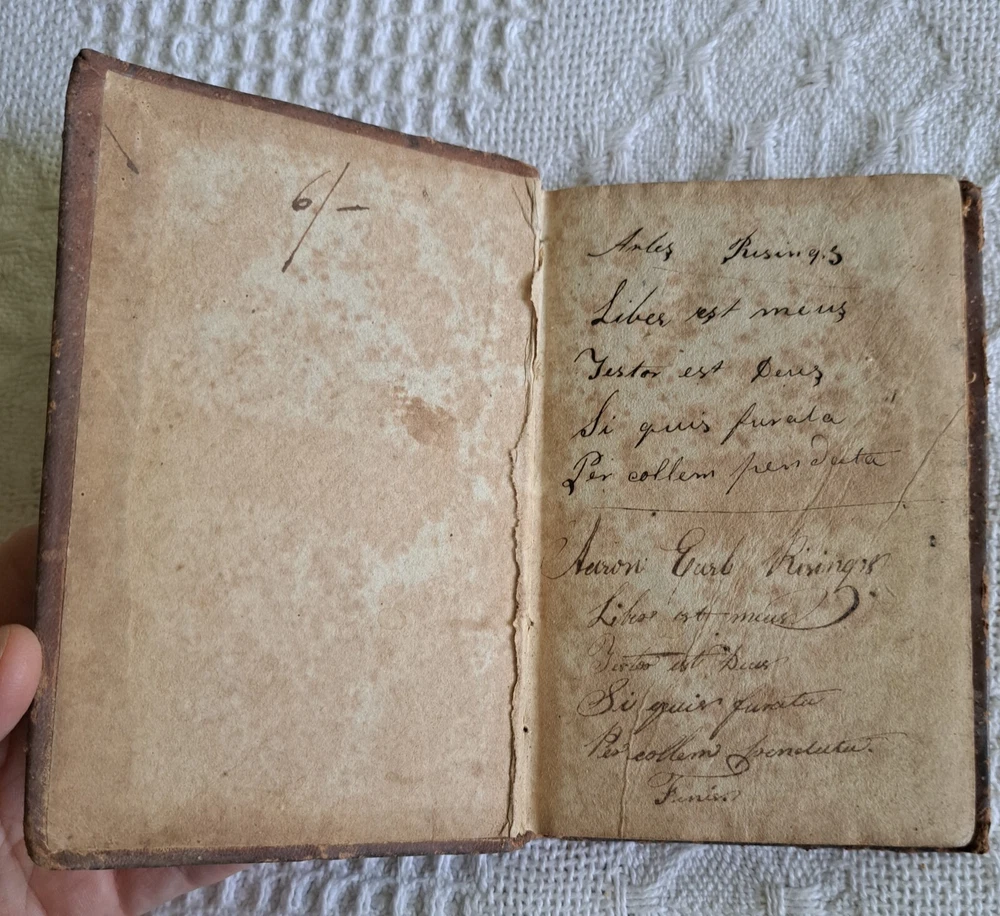 6/-
Arles Rising,s
Liber est meus
Testor est Deus
Si quis furata
Per collem pendata
Aaron Earl Rising,s
Liber est meus
Testor est Deus
Si quis furata
Per collem pendata.
Finis